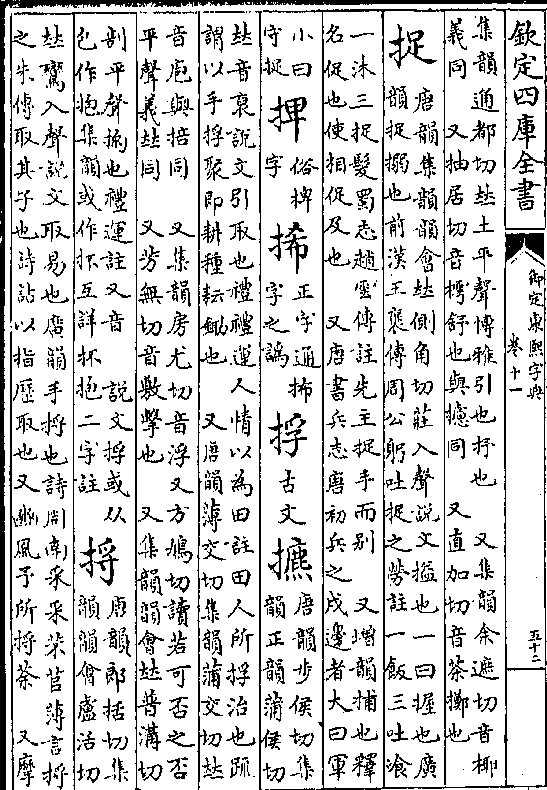 欽定四庫全書
御定康熙字典
卷十一
五十二
集韻通都切𠀤土平聲博雅引也抒也 又集韻余遮切音椰
義同 又抽居切音樗舒也與攄同 又直加切音茶擲也
捉 唐韻集韻韻會𠀤側角切莊入聲說文搤也一曰握也廣
韻捉搦也前漢王褒傳周公躬吐捉之勞註一飯三吐飡
一沐三捉髮蜀志趙雲傳註先主捉手而别 又增韻捕也釋
名促也使相促及也 又唐書兵志唐初兵之戍邊者大曰軍
小曰
守捉
俗 字
正字通
字之譌
捊 古文 㩠 唐韻步侯切集
韻正韻蒲侯切
𠀤音裒說文引取也禮禮運人情以為田註田人所捊治也疏
謂以手捊聚即耕種耘鋤也 又唐韻薄交切集韻蒲交切𠀤
音庖與掊同 又集韻房尤切音浮又方鳩切讀若可否之否
平聲義𠀤同 又芳無切音敷擊也 又集韻韻會𠀤普溝切
剖平聲掬也禮運註又音 說文捊或从
包作抱集韻或作抔互詳抔抱二字註
捋 唐韻郎括切集
韻韻會盧活切
𠀤鸞入聲說文取易也廣韻手捋也詩周南采采芣苢薄言捋
之朱傳取其子也詩詁以指歷取也又豳風予所捋荼 又摩